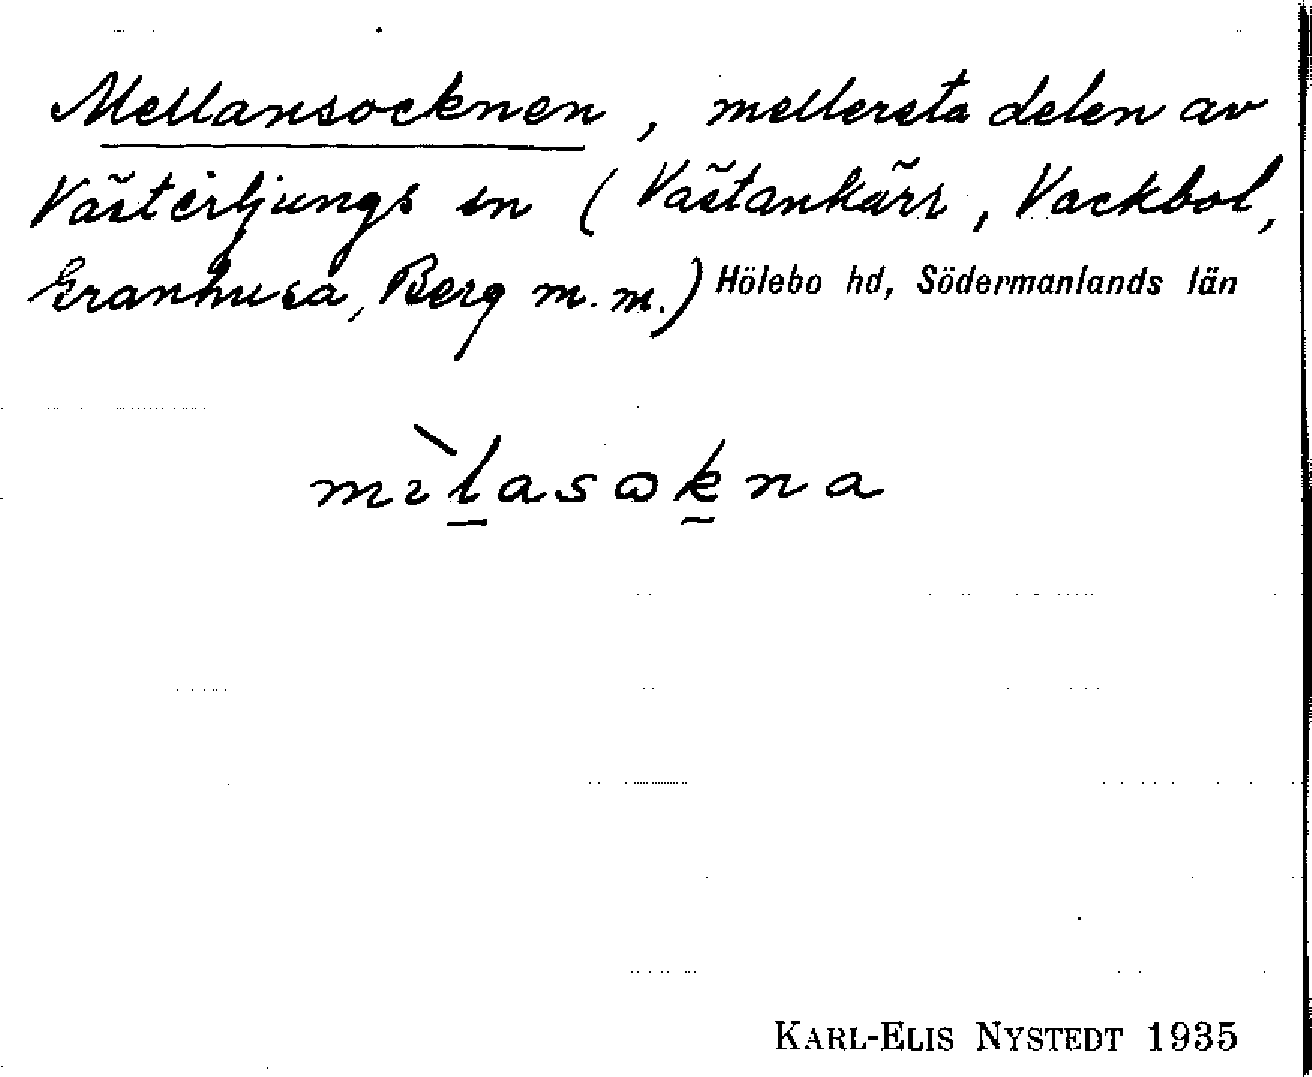 Mellansocknen, mellersta delen av
Västerljungs sn (Västankärr, Vackbol,
Granhusa, Berg m.m.) Hölebo hd, Södermanlands län
mɪ̀lasɷkna
KARL-ELIS NYSTEDT 1935